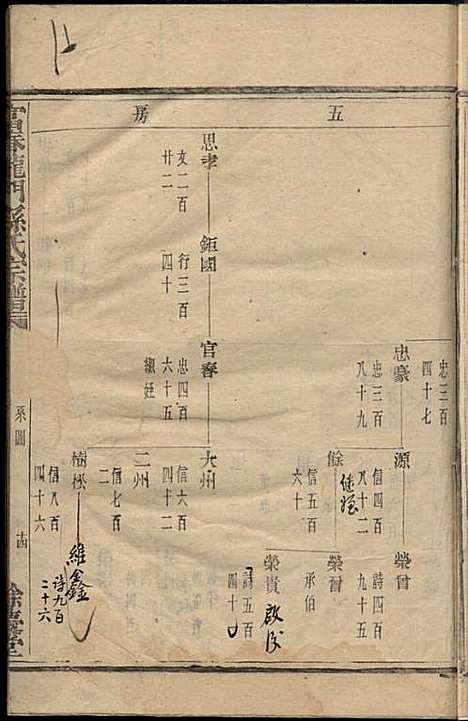 五房
忠三百
四十七
忠豪
忠三百
八十九
源
信四百
八十二
榮曾
詩四百
九十五
餘
信五百
六十
榮曾
承伯
榮貴
詩五百
四十
思孝
文二百
廿二
鉅國
行三百
四十
官春
忠四百
六十五
大州
信六百
四十二
二州
信七百
二
樹松
信八百
四十六
維鑫
詩九百
二十六
富春龍門孫氏宗譜
系圖
餘慶堂